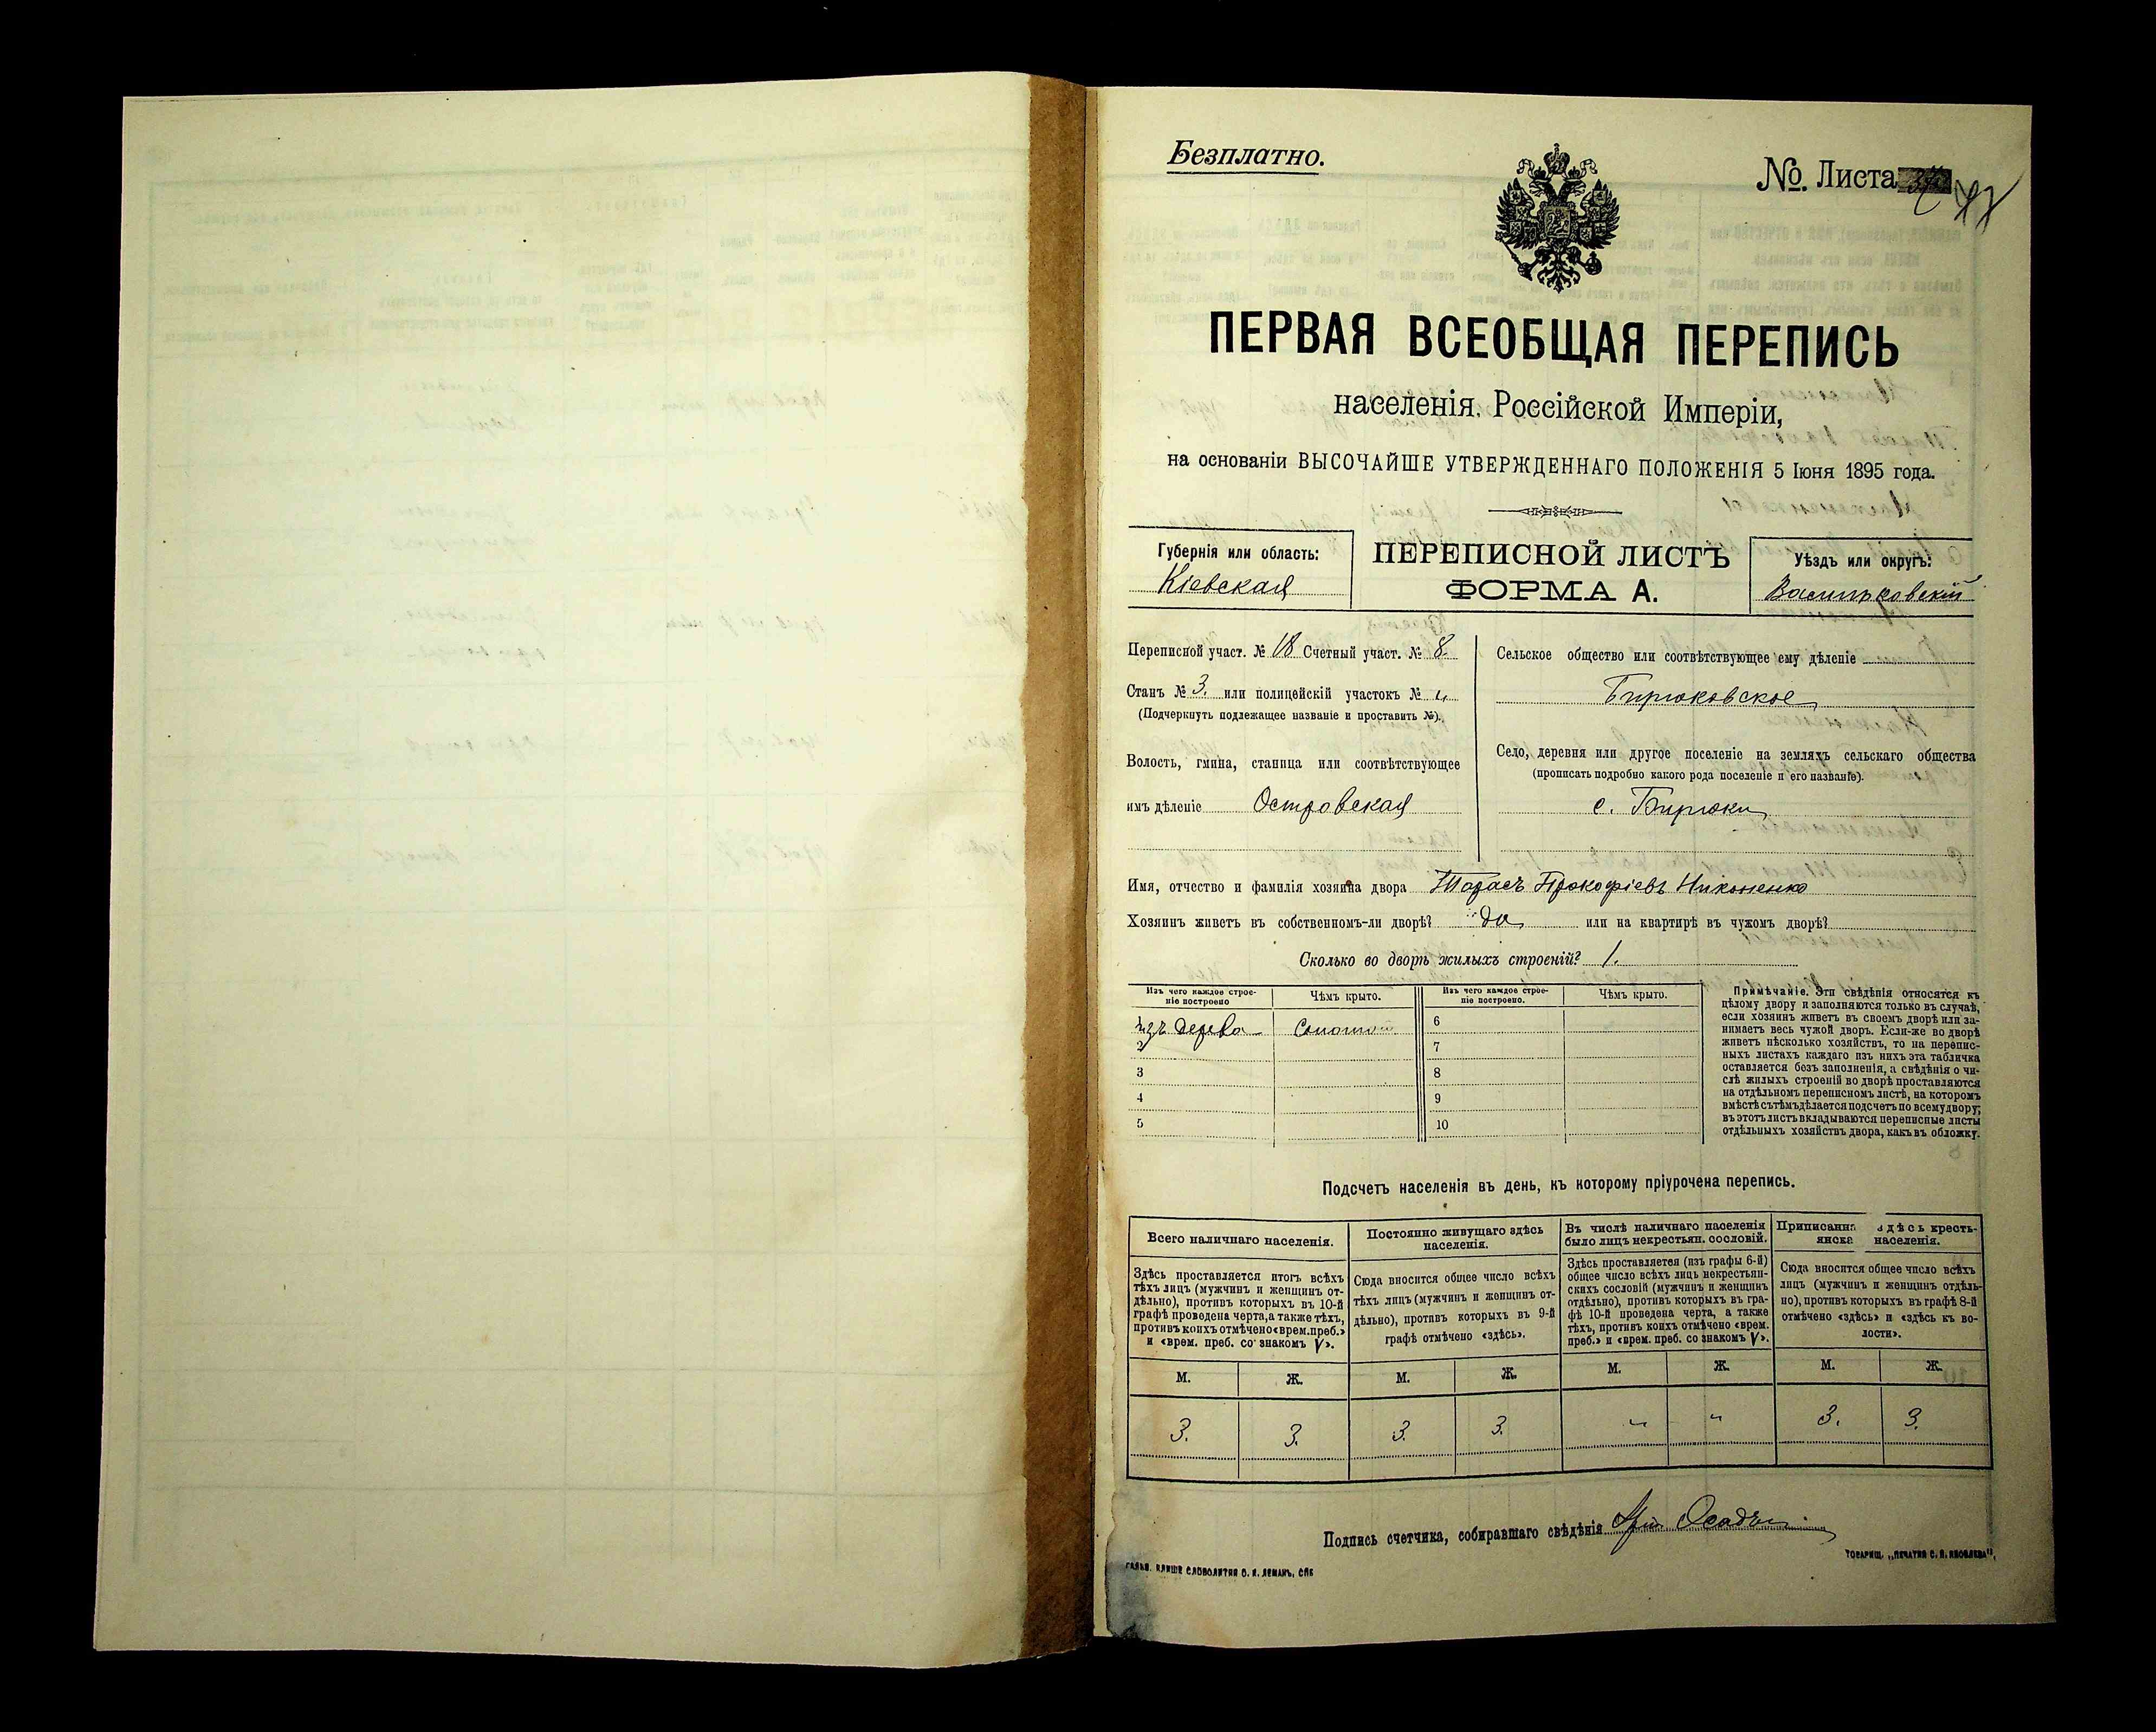 Безплатно.
№. Листа
ПЕРВАЯ ВСЕОБЩАЯ ПЕРЕПИСЬ
населенія Россійской Имперіи,
на основаніи ВЫСОЧАЙШЕ УТВЕРЖДЕННАГО ПОЛОЖЕНІЯ 5 Іюня 1895 года.
Губернія или область:
Кіевская
ПЕРЕПИСНОЙ ЛИСТЪ
ФОРМА А.
Уѣздъ или округъ:
Васильковскій
Переписной участ. № 18 Счетный участ. № 8.
Станъ № 3. или полицейскій участокъ № „
(Подчеркнуть подлежащее названіе и проставить №).
Волость, гмина, станица или соотвѣтствующее
имъ дѣленіе Островская
Сельское общество или соотвѣтствующее ему дѣленіе
Бирюковское
Село, деревня или другое поселеніе на земляхъ сельскаго общества
(прописать подробно какого рода поселеніе и его названіе).
с. Бирюки
Имя, отчество и фамилія хозяина двора Тарасъ Прокофіевъ Никоненко
Хозяинъ живетъ въ собственномъ-ли дворѣ? да или на квартирѣ въ чужомъ дворѣ?
Сколько во дворѣ жилыхъ строеній? 1.
Изъ чего каждое строе-
ніе построено
Чѣмъ крыто.
Изъ чего каждое строе-
ніе построено.
Чѣмъ крыто.
изъ дерева Соломой
2
3
4
5
6
7
8
9
10
Примѣчаніе. Эти свѣдѣнія относятся къ
цѣлому двору и заполняются только въ случаѣ,
если хозяинъ живетъ въ своемъ дворѣ или за-
нимаетъ весь чужой дворъ. Если-же во дворѣ
живетъ нѣсколько хозяйствъ, то на перепис-
ныхъ листахъ каждаго изъ нихъ эта табличка
оставляется безъ заполненія, а свѣдѣнія о чи-
слѣ жилыхъ строеній во дворѣ проставляются
на отдѣльномъ переписномъ листѣ, на которомъ
вмѣстѣ съ тѣмъ дѣлается подсчетъ по всему двору;
въ этотъ листъ вкладываются переписные листы
отдѣльныхъ хозяйствъ двора, какъ въ обложку.
Подсчетъ населенія въ день, къ которому пріурочена перепись.
Всего наличнаго населенія.
Здѣсь проставляется итогъ всѣхъ
тѣхъ лицъ (мужчинъ и женщинъ от-
дѣльно), противъ которыхъ въ 10-й
графѣ проведена черта, а также тѣхъ,
противъ коихъ отмѣчено «врем. преб.»
и «врем. преб. со знакомъ V».
Постоянно живущаго здѣсь
населенія.
Сюда вносится общее число всѣхъ
тѣхъ лицъ (мужчинъ и женщинъ от-
дѣльно), противъ которыхъ въ 9-й
графѣ отмѣчено «здѣсь».
Въ числѣ наличнаго населенія
было лицъ некрестьян. сословій.
Здѣсь проставляется (изъ графы 6-й)
общее число всѣхъ лицъ некрестьян-
скихъ сословій (мужчинъ и женщинъ
отдѣльно), противъ которыхъ въ гра-
фѣ 10-й проведена черта, а также
тѣхъ, противъ коихъ отмѣчено «врем.
преб.» и «врем. преб. со знакомъ V».
Приписанна здѣсь кресть-
янска населенія.
Сюда вносится общее число всѣхъ
лицъ (мужчинъ и женщинъ отдѣль-
но), противъ которыхъ въ графѣ 8-й
отмѣчено «здѣсь» и «здѣсь къ во-
лости».
М. Ж. М. Ж. М. Ж. М. Ж.
3. 3. 3. 3. „ „ 3. 3.
Подпись счетчика, собиравшаго свѣдѣнія
ГАЛЬВ. КЛИШЕ СЛОВОЛИТНЯ О. И. ЛЕМАНЪ, СПБ
ТОВАРИЩ. „ПЕЧАТНЯ С. П. ЯКОВЛЕВА".